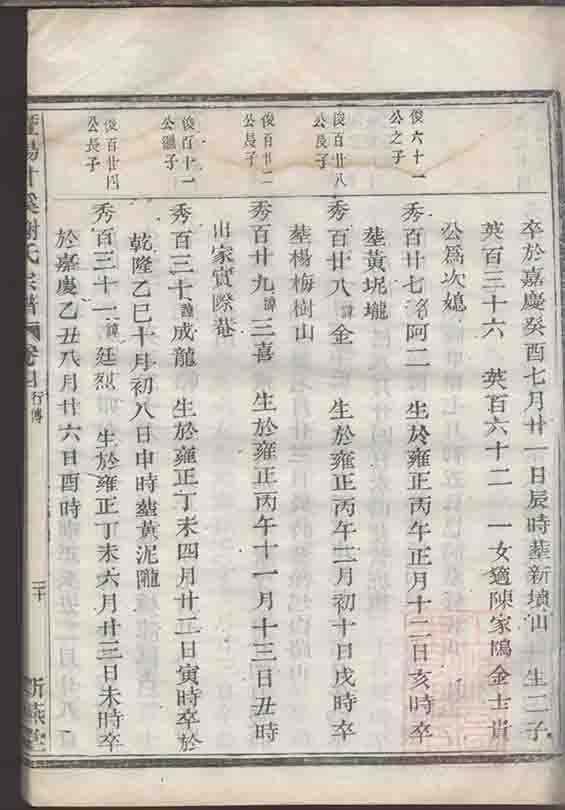 卒於嘉慶癸酉七月廿一日辰時塟新墳山 生二子
英百三十六 英百六十二 一女適陳家鴫金士貴
公爲次媳
俊六十一
公之子
秀百廿七名阿二 生於雍正丙午正月十二日亥時卒
塟黃坭壠
俊百廿八
公長子
秀百廿八諱金 生於雍正丙午二月初十日戌時卒
塟楊梅樹山
俊百廿二
公長子
秀百廿九諱二喜 生於雍正丙午十一月十三日丑時
出家實際菴
俊百十一
公繼子
秀百三十諱成龍 生於雍正丁未四月廿二日寅時卒於
乾隆乙巳十月初八日申時塟黃泥隴
俊百廿四
公長子
秀百三十一諱廷烈 生於雍正丁未六月廿三日未時卒
於嘉慶乙丑八月廿六日酉時
暨陽 溪謝氏宗譜 卷 行傳 二十